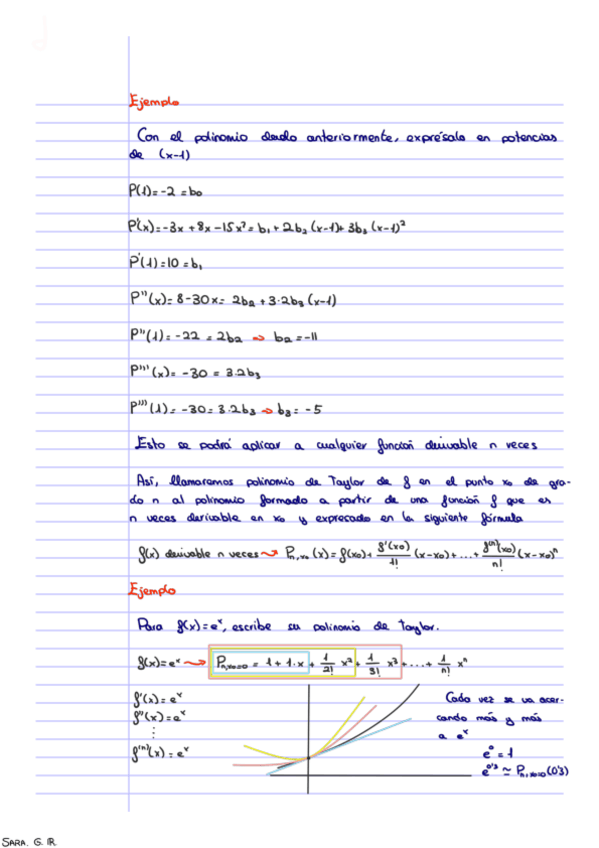 Ejemplo
Con el polinomio dado anteriormente, exprésalo en potencias
de (x-1)
P(1)=-2=b₀
P'(x)=-3x+8x-15x²=b₁+2b₂(x-1)+3b₃(x-1)²
P'(1)=10=b₁
P''(x)=8-30x=2b₂+3·2b₃(x-1)
P''(1)=-22=2b₂ ⇒ b₂=-11
P'''(x)=-30=3·2b₃
P'''(1)=-30=3·2b₃ → b₃=-5
Esto se podrá aplicar a cualquier función derivable n veces
Así, llamaremos polinomio de Taylor de f en el punto x₀ de gra-
do n al polinomio formado a partir de una función f que es
n veces derivable en x₀ y expresado en la siguiente fórmula
f(x) derivable n veces → Pn,x₀(x)=f(x₀)+f'(x₀)/1!(x-x₀)+...+f⁽ⁿ⁾(x₀)/n!(x-x₀)ⁿ
Ejemplo
Para f(x)=eˣ, escribe su polinomio de Taylor.
f(x)=eˣ → Pn,x₀=0 = 1+1·x+1/2! x²+1/3! x³+...+1/n! xⁿ
f'(x)=eˣ
f''(x)=eˣ
⋮
f⁽ⁿ⁾(x)=eˣ
Cada vez se va acer-
cando más y más
a eˣ
e⁰=1
e⁰'³≃Pn,x₀=0(0'3)
SARA. G. IR.